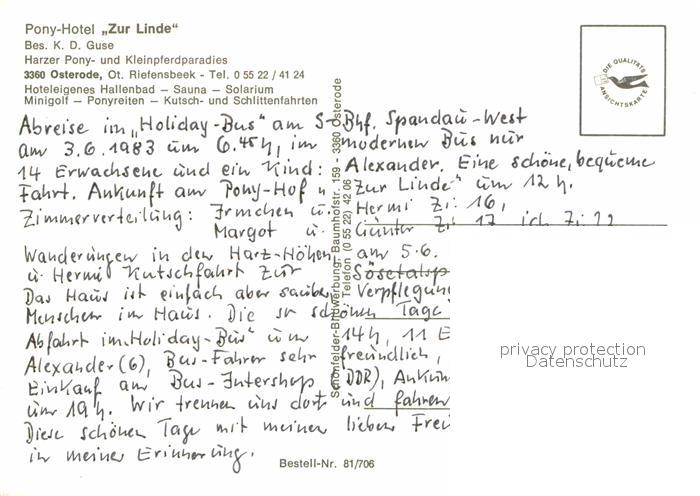 Pony-Hotel „Zur Linde“
Bes. K. D. Guse
Harzer Pony- und Kleinpferdparadies
3360 Osterode, Ot. Riefensbeek - Tel. 0 55 22 / 41 24
Hoteleigenes Hallenbad — Sauna — Solarium
Minigolf — Ponyreiten — Kutsch- und Schlittenfahrten
DIE QUALITÄTS
ANSICHTSKARTE
Abreise im „Holiday-Bus“ am S-Bhf. Spandau-West
am 3.6.1983 um 6.45 h, im modernen Bus nur
14 Erwachsene und ein Kind: Alexander. Eine schöne, bequeme
Fahrt. Ankunft am Pony-Hof „Zur Linde“ um 12 h.
Zimmerverteilung: Irmchen u. Hermi Zi. 16,
Margot u. Günter Zi. 17 ich Zi. 22
Wanderungen in den Harz-Höhen am 5.6.
u. Hermi Kutschfahrt zur Sösetalsp
Das Haus ist einfach aber sauber Verpflegung
Menschen im Haus. Die so schönen Tage
Abfahrt im „Holiday-Bus“ um 14 h, 11 E
Alexander (6), Bus-Fahrer sehr freundlich,
Einkauf am Bus-Intershop (DDR), Ankun
um 19 h. Wir trennen uns dort und fahren
Diese schönen Tage mit meinen lieben Frei
in meiner Erinnerung.
Schönfelder-Bildwerbung, Baumhofstr. 159 - 3360 Osterode
Telefon (0 55 22) 42 06
privacy protection
Datenschutz
Bestell-Nr. 81/706